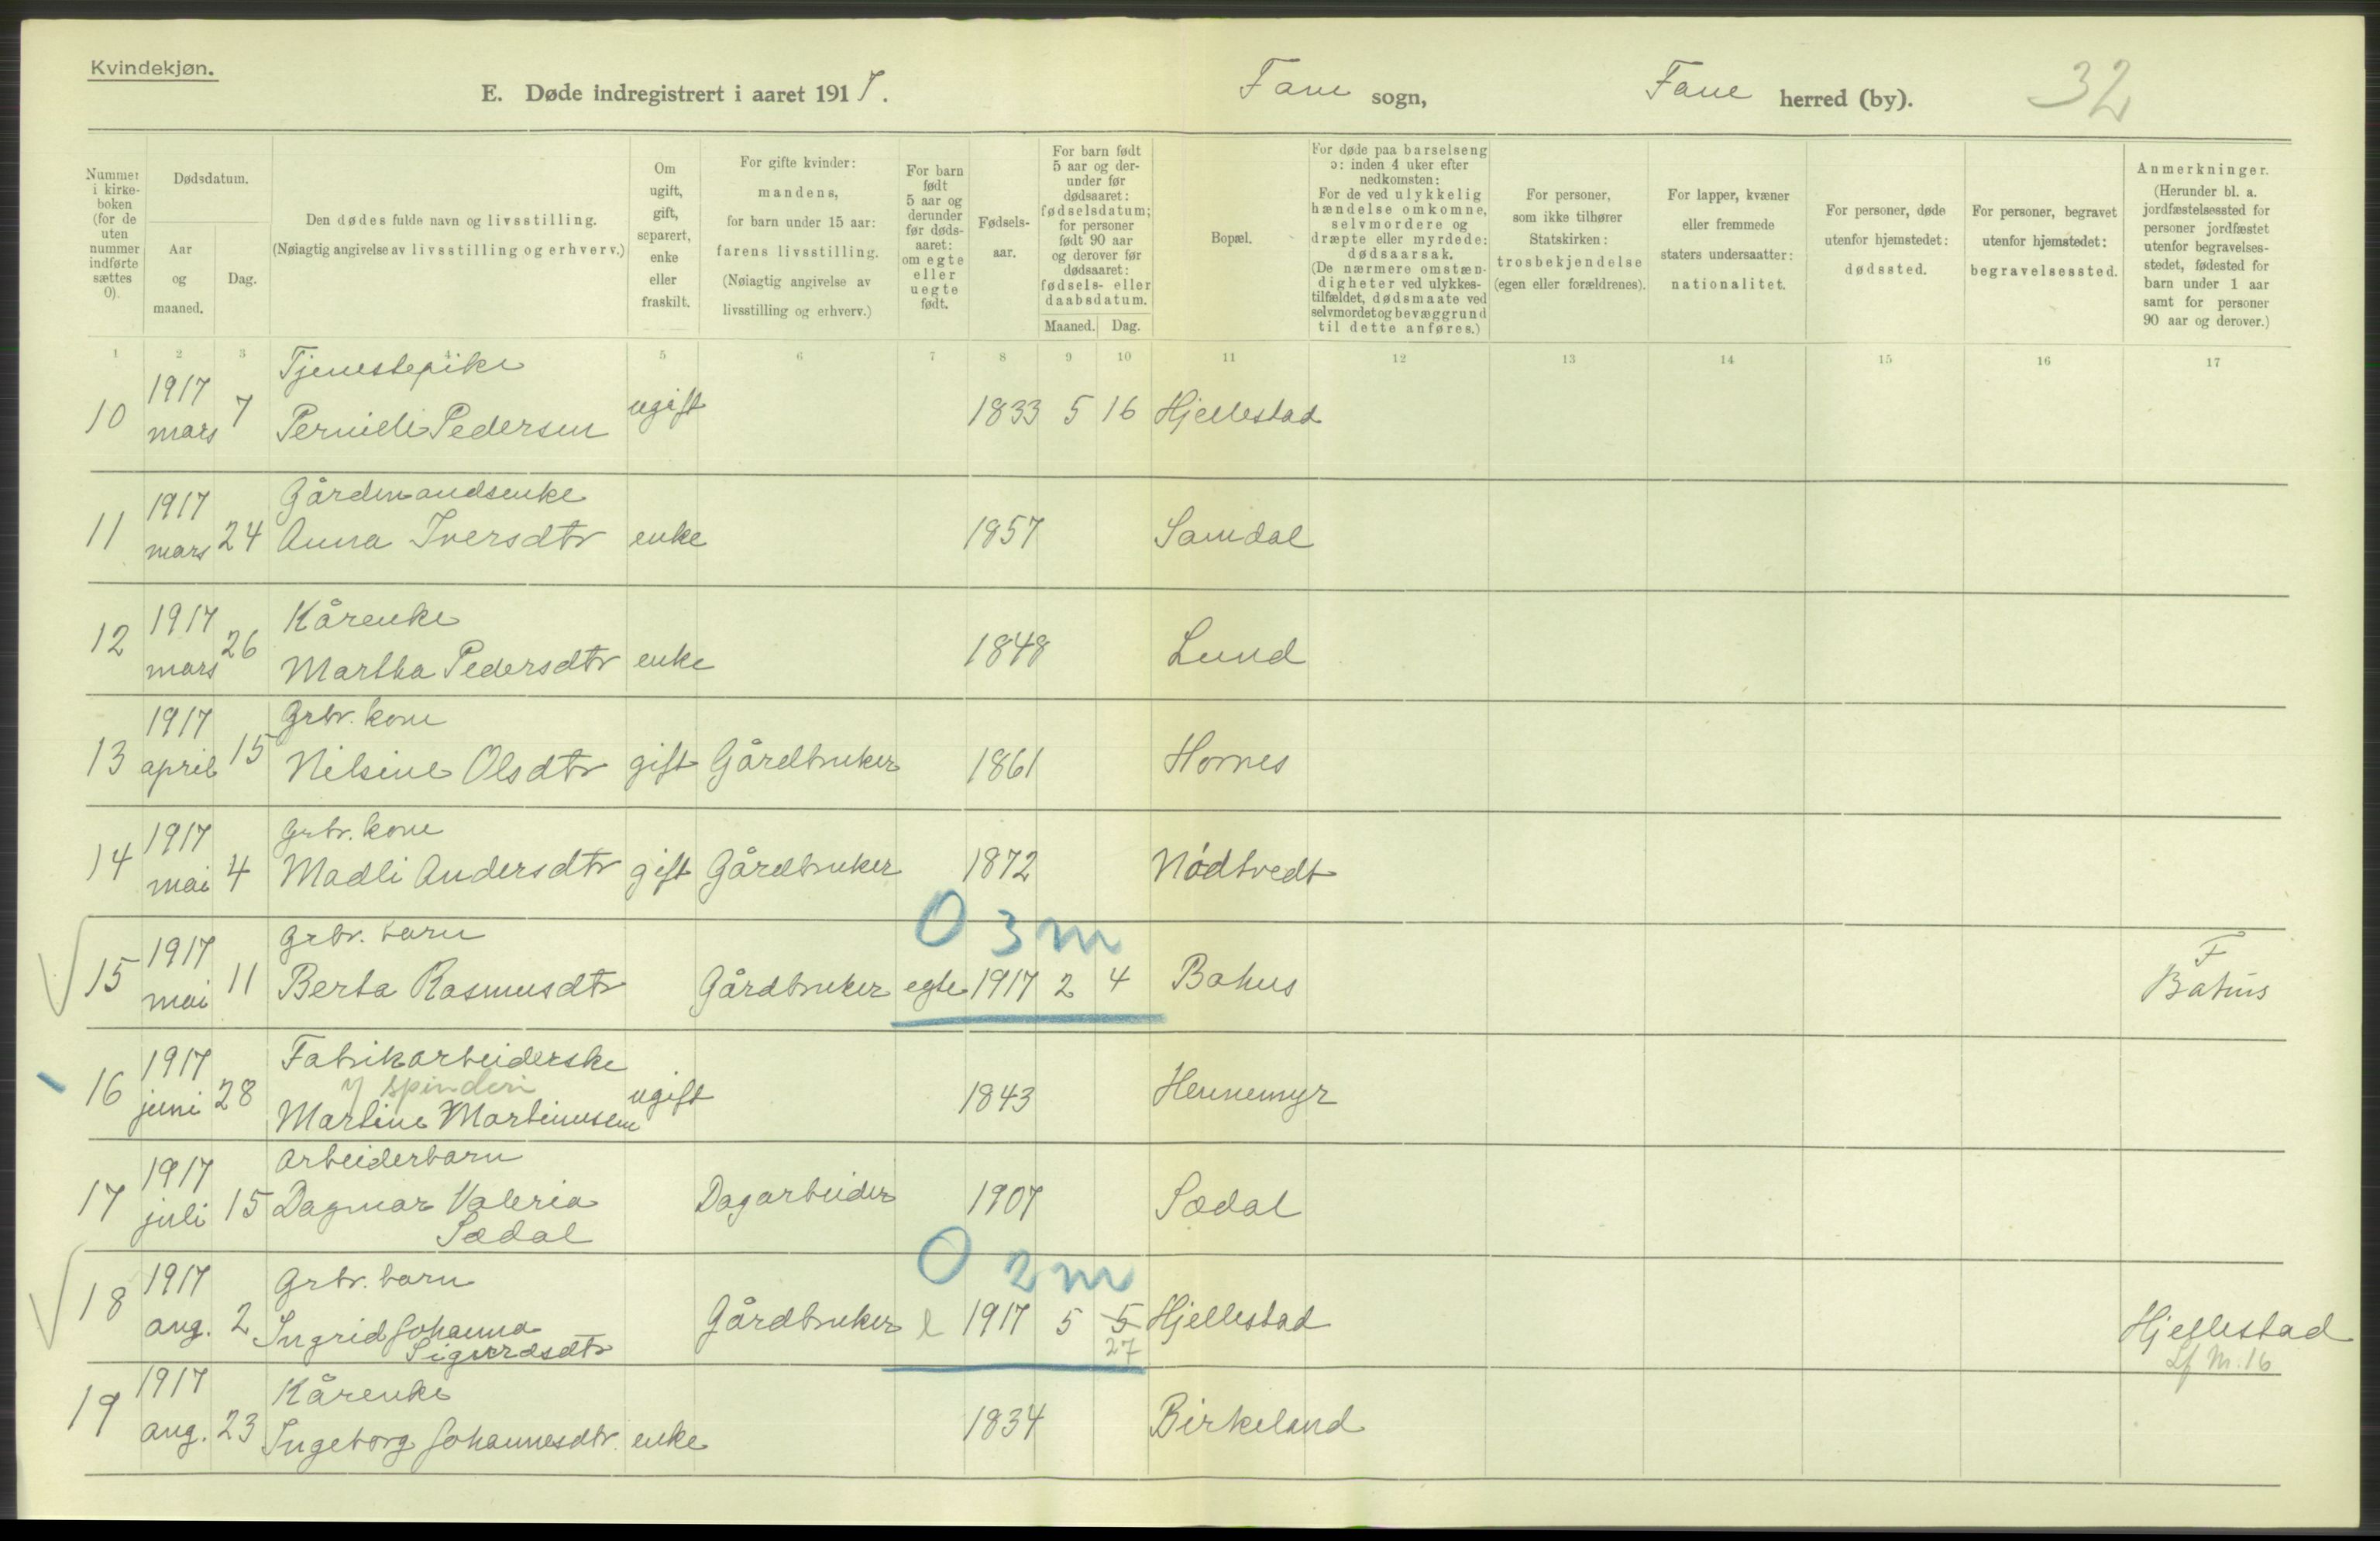 Kvindekjøn.
E. Døde indregistrert i aaret 1917. Fane sogn, Fane herred (by). 32
Nummer i kirkeboken (for de uten nummer indførte sættes 0).
Dødsdatum.
Aar og maaned.
Dag.
Den dødes fulde navn og livsstilling.
(Nøiagtig angivelse av livsstilling og erhverv.)
Om ugift, gift, separert, enke eller fraskilt.
For gifte kvinder: mandens, for barn under 15 aar: farens livsstilling. (Nøiagtig angivelse av livsstilling og erhverv.)
For barn født 5 aar og derunder før dødsaaret: om egte eller uegte født.
Fødselsaar.
For barn født 5 aar og derunder før dødsaaret: fødselsdatum; for personer født 90 aar og derover før dødsaaret: fødsels- eller daabsdatum.
Maaned. Dag.
Bopæl.
For døde paa barselseng ɔ: inden 4 uker efter nedkomsten: For de ved ulykkelig hændelse omkomne, selvmordere og dræpte eller myrdede: dødsaarsak. (De nærmere omstændigheter ved ulykkestilfældet, dødsmaate ved selvmordet og bevæggrund til dette anføres.)
For personer, som ikke tilhører Statskirken: trosbekjendelse (egen eller forældrenes).
For lapper, kvæner eller fremmede staters undersaatter: nationalitet.
For personer, døde utenfor hjemstedet: dødssted.
For personer, begravet utenfor hjemstedet: begravelsessted.
Anmerkninger. (Herunder bl. a. jordfæstelsessted for personer jordfæstet utenfor begravelsesstedet, fødested for barn under 1 aar samt for personer 90 aar og derover.)
1 2 3 4 5 6 7 8 9 10 11 12 13 14 15 16 17
1917 Tjenestepike
10 mars 7 Pernille Pedersen ugift 1833 5 16 Hjellestad
1917 Gårdmandsenke
11 mars 24 Anna Iversdtr enke 1857 Samdal
1917 Kårenke
12 mars 26 Martha Pedersdtr enke 1848 Lund
1917 Grbr. kone
13 april 15 Nilsine Olsdtr gift Gårdbruker 1861 Hornes
1917 Grbr. kone
14 mai 4 Madli Andersdtr gift Gårdbruker 1872 Nödtvedt
0 3 m
1917 Grbr. barn F
15 mai 11 Berta Rasmusdtr Gårdbruker egte 1917 2 4 Bahus Bahus
1917 Fabrikarbeiderske
y spinderi
16 juni 28 Martine Martinusen ugift 1843 Hennemyr
1917 Arbeiderbarn
17 juli 15 Dagmar Valeria Dagarbeider 1907 Sædal
Sædal
0 2 m
1917 Grbr. barn
18 aug. 2 Ingrid Johanna Gårdbruker e 1917 5 5 Hjellestad Hjellestad
Sigurdsdtr 27 Lf Nr. 16
1917 Kårenke
19 aug. 23 Ingeborg Johannesdtr. enke 1834 Birkeland